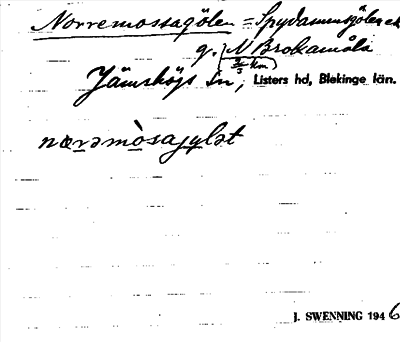 Norremossagölen = Spydammsgölen el.
g. N Brokamåla
3/5 km
Jämshögs sn, Listers hd, Blekinge län.
nærəmòsajylət
J. SWENNING 1946